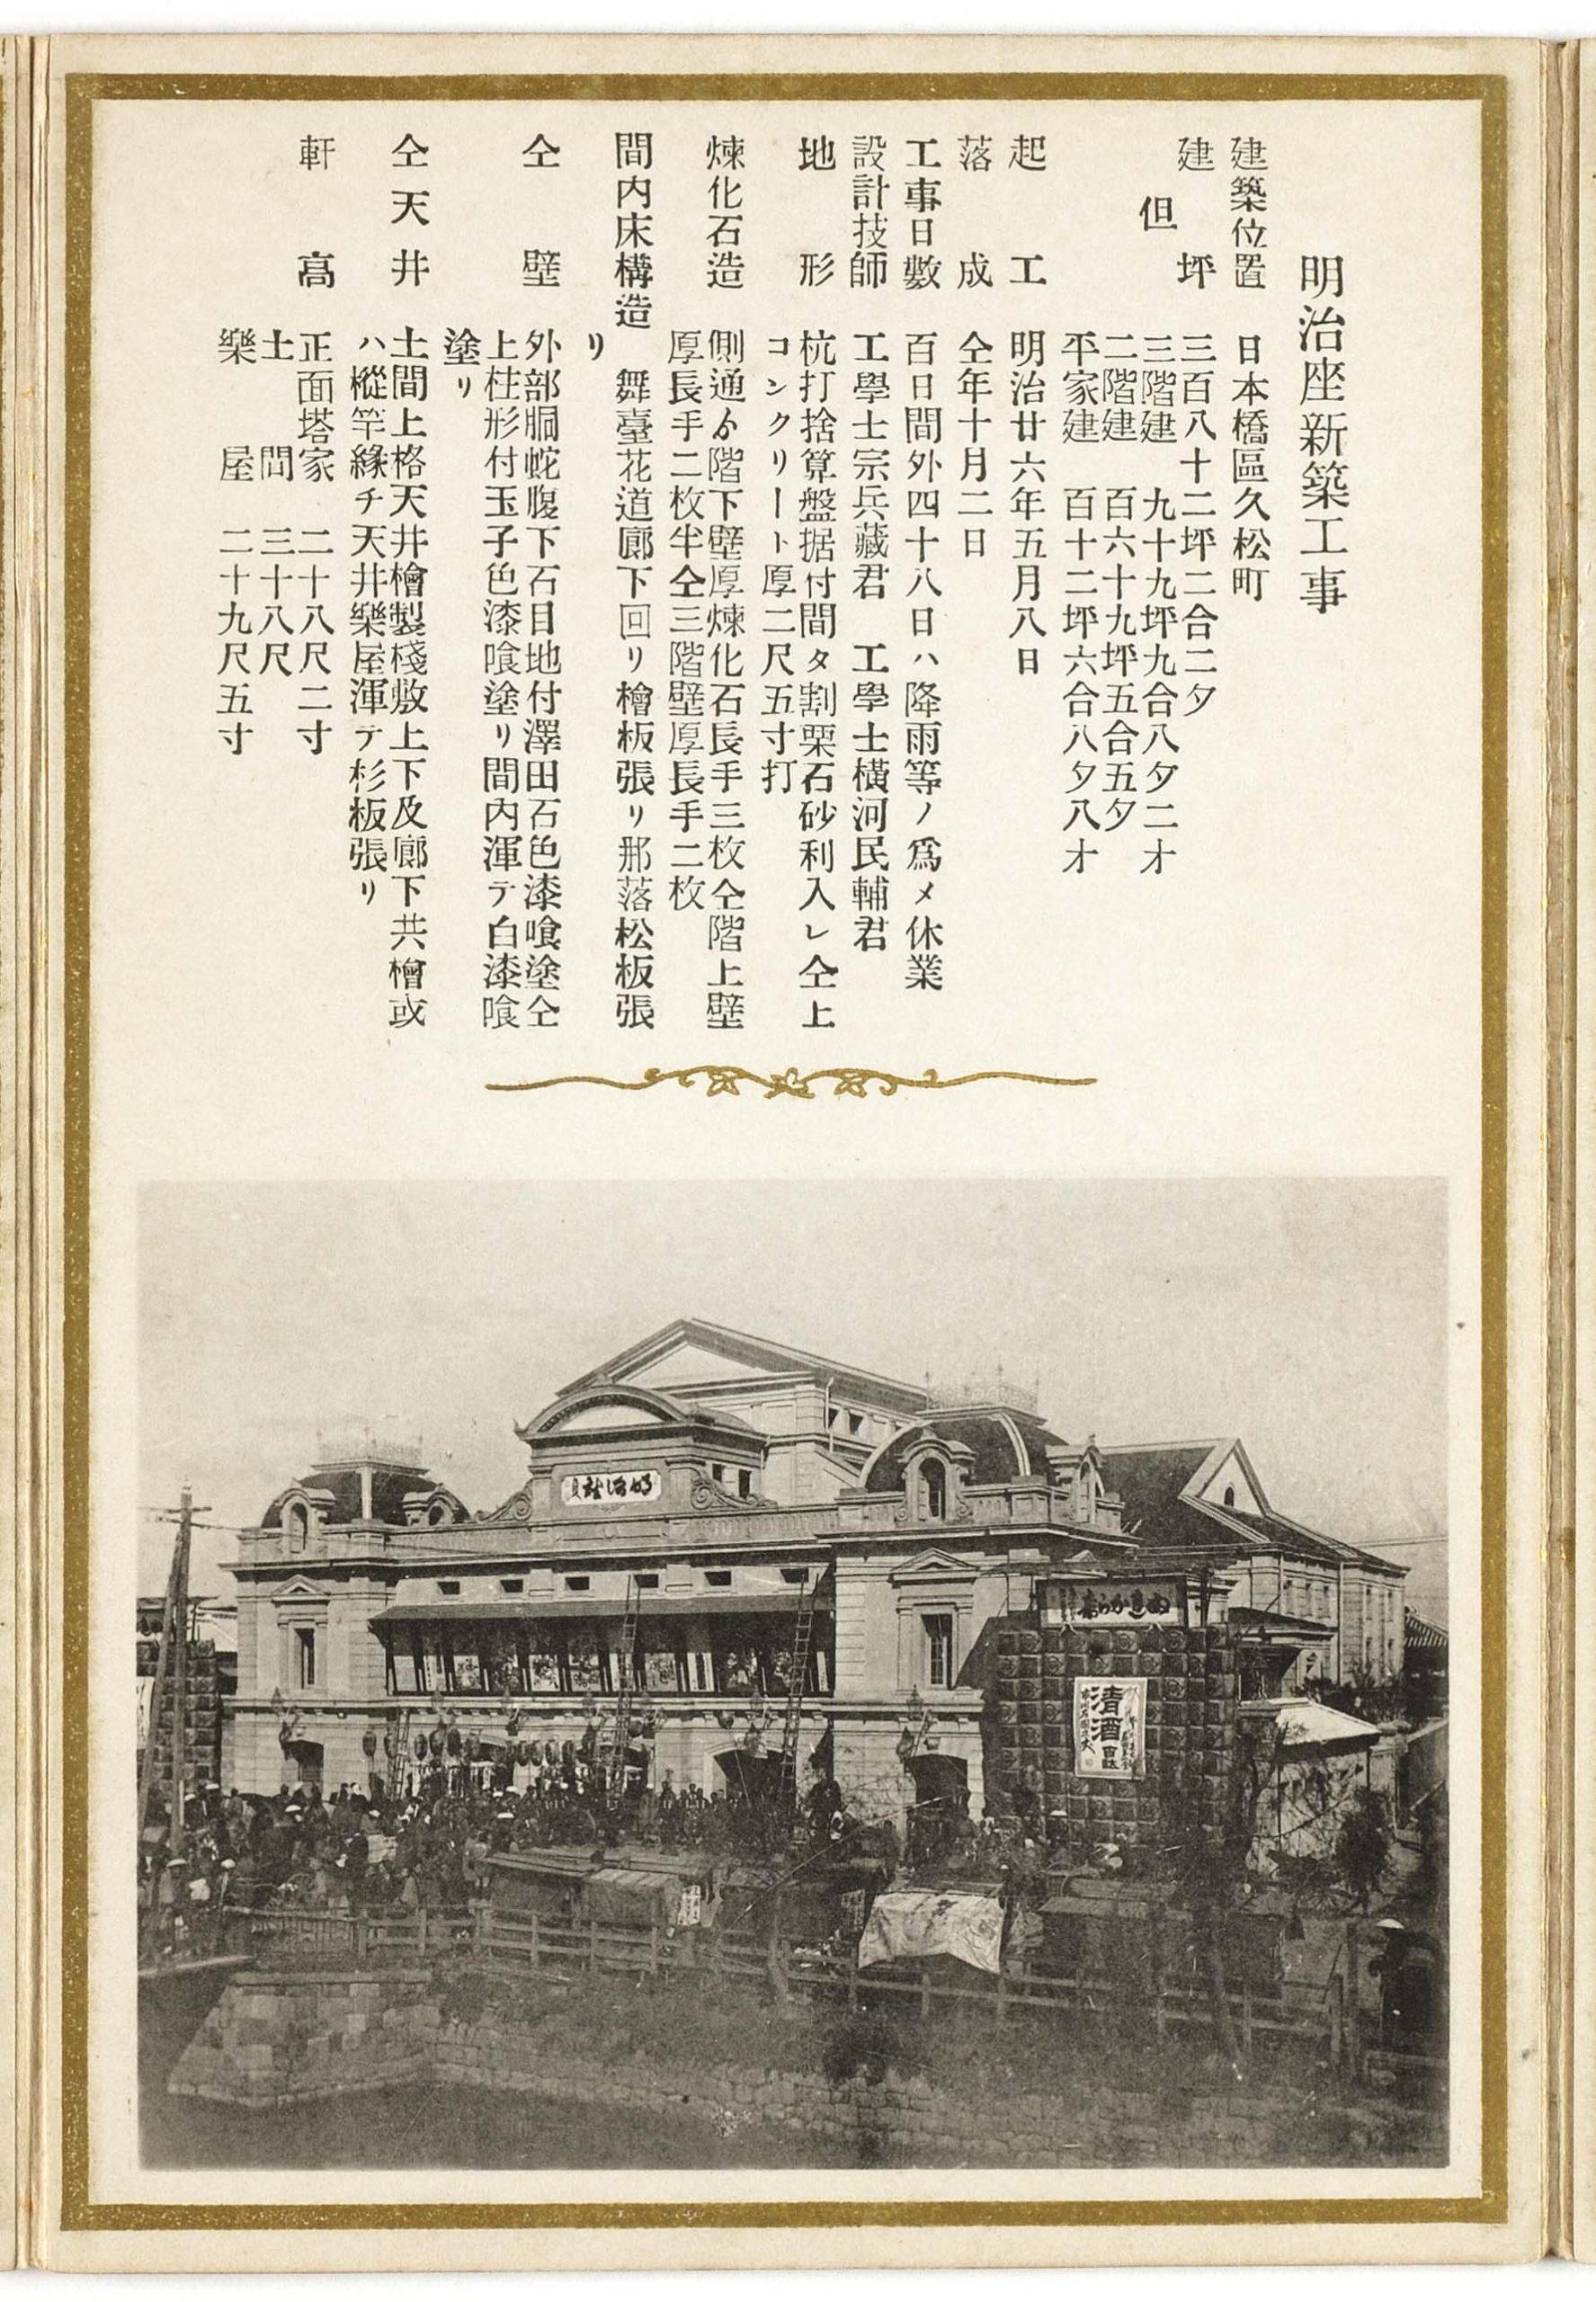 明治座新築工事
建築位置　日本橋區久松町
建坪　三百八十二坪二合二夕
但　三階建　九十九坪九合八夕二才
二階建　百六十九坪五合五夕
平家建　百十二坪六合八夕八才
起工　明治廿六年五月八日
落成　仝年十月二日
工事日數　百日間外四十八日ハ降雨等ノ爲メ休業
設計技師　工學士宗兵藏君　工學士橫河民輔君
地形　杭打捨算盤据付間タ割栗石砂利入レ仝上
コンクリート厚二尺五寸打
煉化石造　側通ゟ階下壁厚煉化石長手三枚仝階上壁
厚長手二枚半仝三階壁厚長手二枚
間内床構造　舞臺花道廊下回リ檜板張リ那落松板張
リ
仝壁　外部胴蛇腹下石目地付澤田石色漆喰塗仝
上柱形付玉子色漆喰塗リ間内渾テ白漆喰
塗リ
仝天井　土間上格天井檜製棧敷上下及廊下共檜或
ハ樅竿緣チ天井樂屋渾テ杉板張リ
軒高　正面塔家　二十八尺二寸
土間　三十八尺
樂屋　二十九尺五寸
明治座
清酒